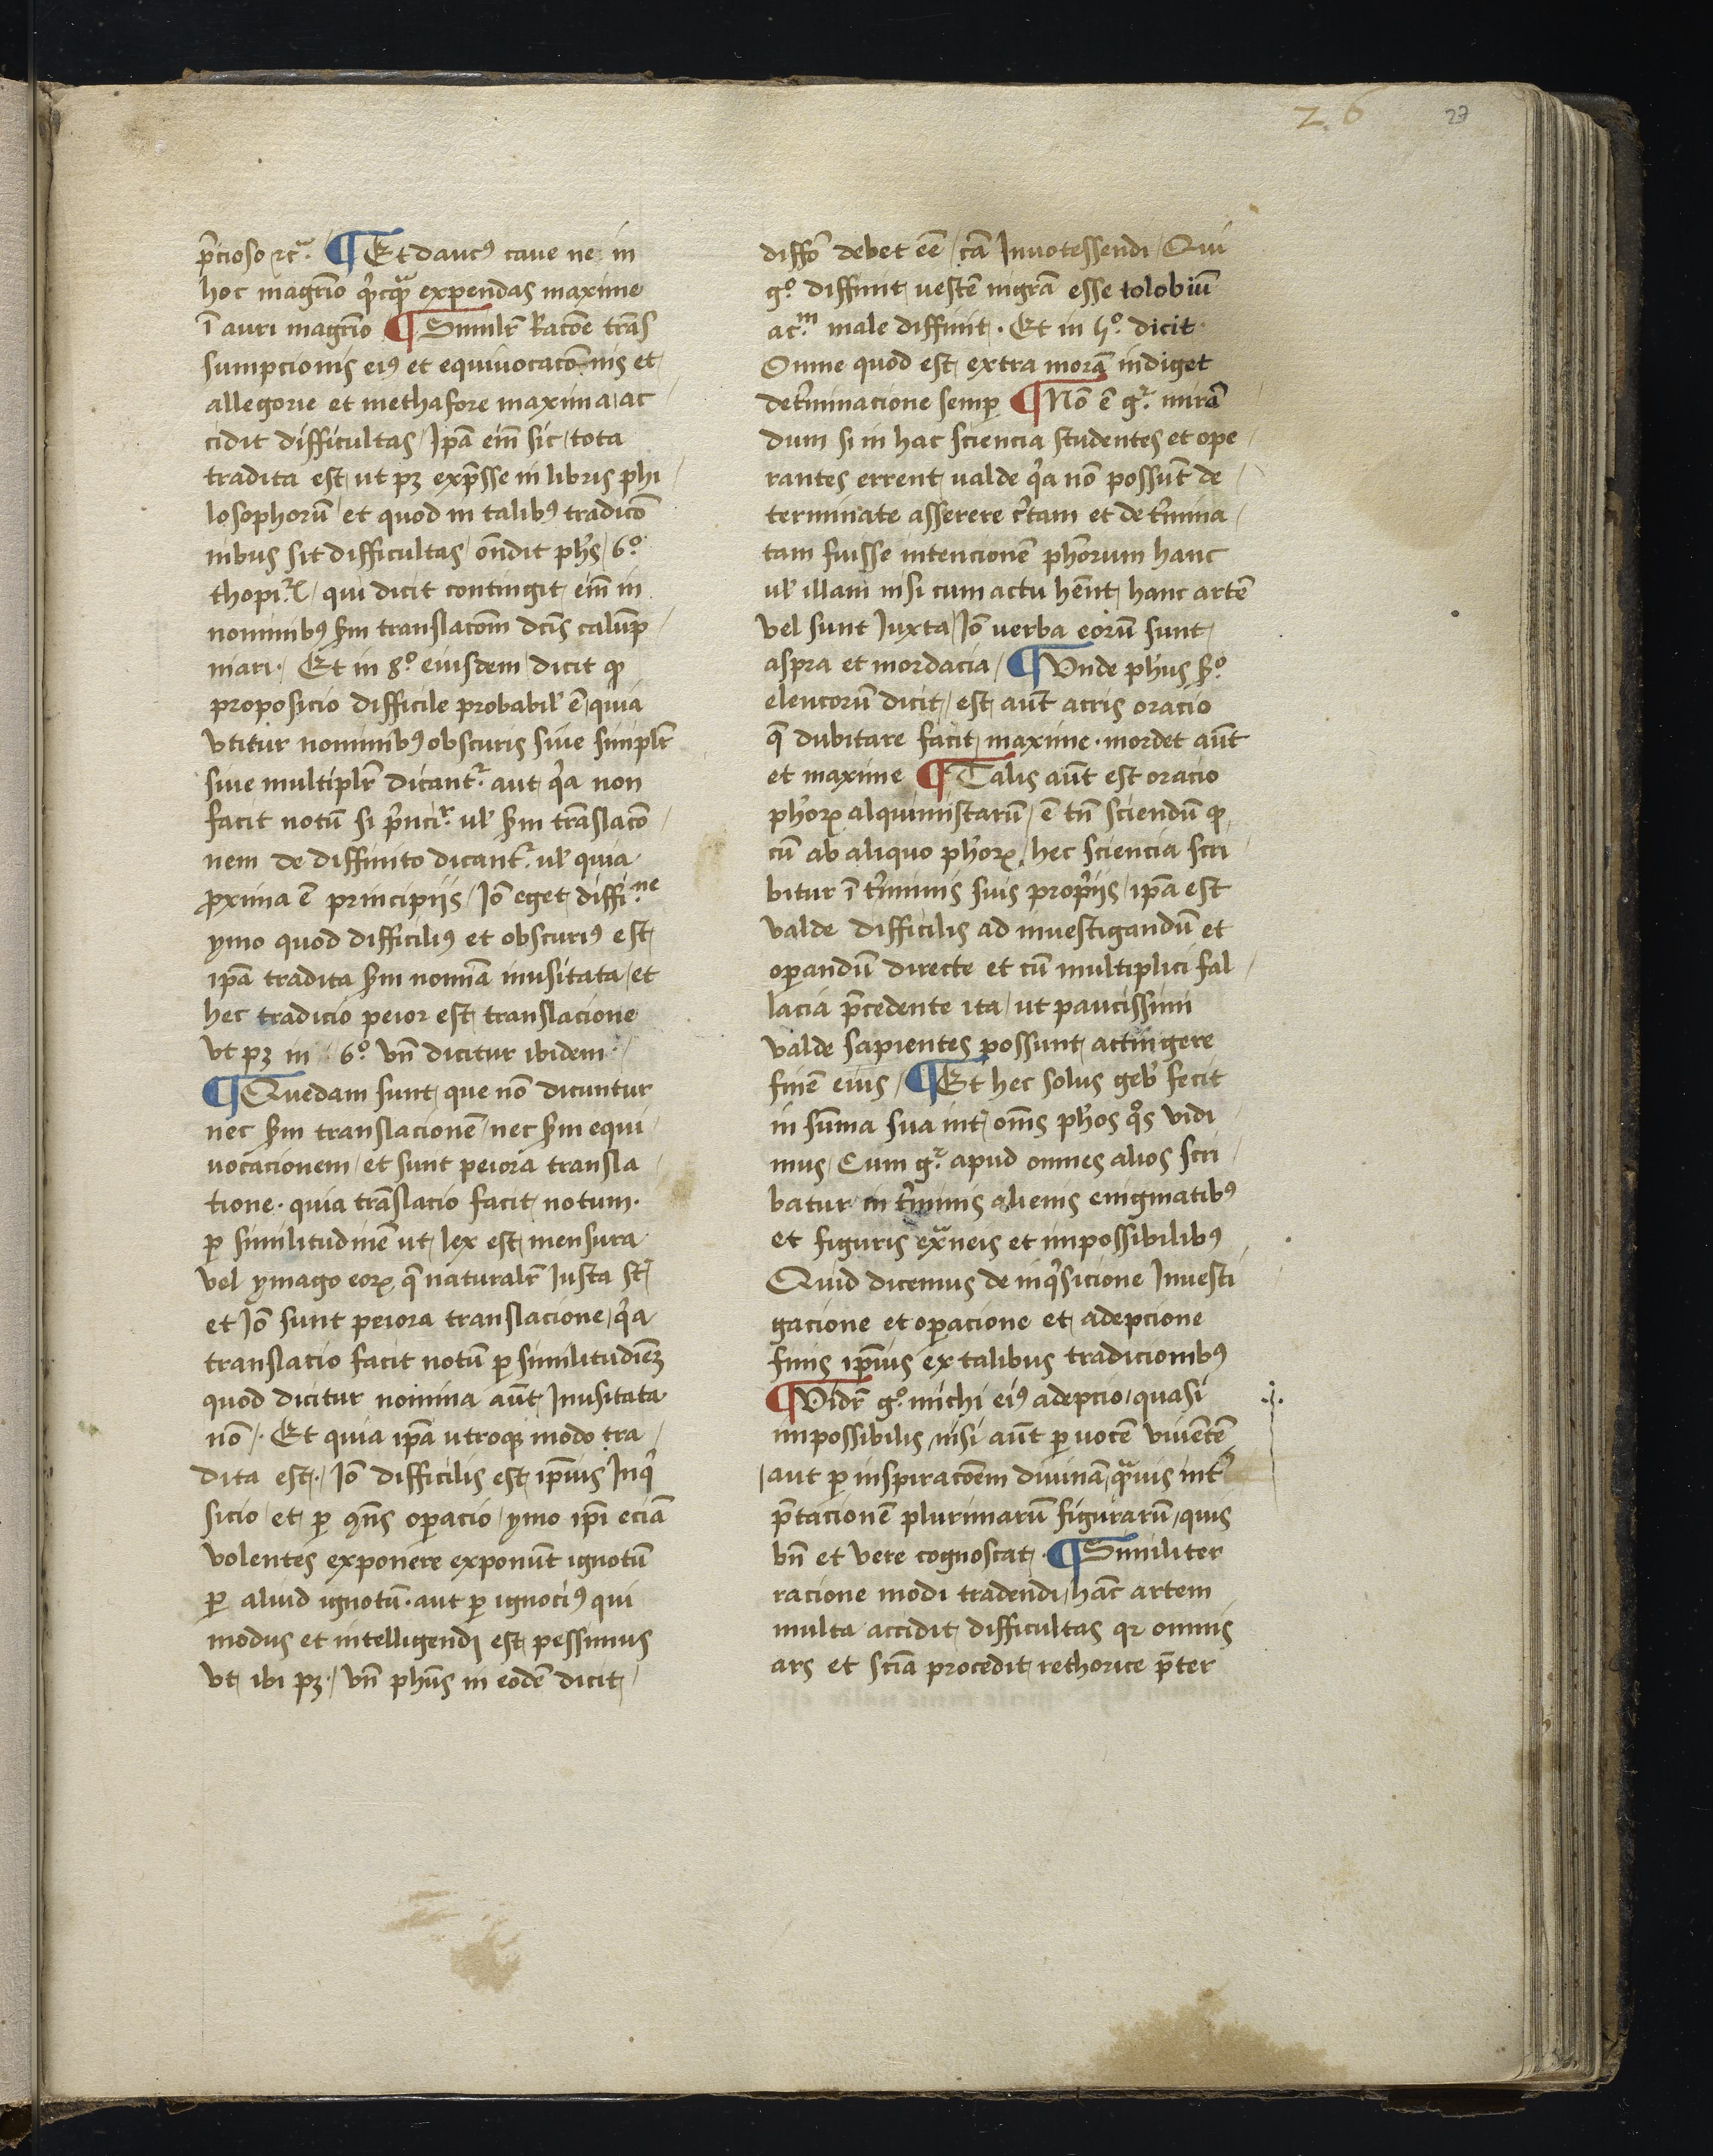 26 27
p̄cioso ⁊cͣ. ¶ Et daucꝰ caue ne in
hoc magr̄io qͥcqͣ expendas maxime
ī auri magr̄io ¶ Similr̄ Racōe trās
sumpcionis eiꝰ et equiuocacōnis et
allegorie et methafore maxima ac
cidit difficultas / Ip̄a em̄ sic tota
tradita est / ut pꝫ exp̄sse in libris phi
losophorū et quod in talibꝰ tradicō
nibus sit difficultas on̄dit ph̄s / 6º
qui dicit contingit em̄ in
nominibꝰ scd̄m translacōm dcīs calūp
niari · Et in 8º eiusdem dicit ꝙ
proposicio difficile probabil̄ ē quia
vtitur nominibꝰ obscuris siue simplr̄
siue multiplr̄ dicantᷣ aut qͥa non
facit notū si p̄nciᷣ. ul̄ scd̄m trāslacō
nem de diffinito dicantᷣ. ul̄ quia
ꝓxima ē principijs / Iō eget diffi.ⁿᵉ
ymo quod difficiliꝰ et obscuriꝰ est
ip̄a tradita scd̄m nomīa inusitata et
hec tradicio peior est translacione
vt pꝫ in 6º vn̄ dicitur ibidem
¶ Quedam sunt que nō dicuntur
nec scd̄m translacionē nec scd̄m equi
uocacionem et sunt peiora transla
tione · quia trāslacio facit notum ·
ꝑ similitudinē ut lex est mensura
vel ymago eoꝝ q̄ naturalr̄ Iusta st̄
et Iō sunt peiora translacione / qͥa
translatio facit notū ꝑ similitudīeꝫ
quod dicitur nomina aūt Inusitata
nō / · Et quia ip̄a utroqꝫ modo tra
dita est · / Iō difficilis est ip̄ius Inqͥ
sicio / et ꝑ ꝯn̄s oꝑacio / ymo ip̄i eciā
volentes exponere exponūt ignotū
ꝑ aliud ignotū · aut ꝑ ignociꝰ qui
modus et intelligendi est pessimus
vt ibi pꝫ · / vn̄ ph̄us in eodē dicit
diffō debet eē / cā Innotessendi / Qui
gº diffinit uestē nigrā esse tolobiū
ac.ᵐ male diffinit · Et in hº. dicit ·
Omne quod est extra morā indiget
det̄minacione semꝑ ¶ Nō ē gᷣ. mirā
dum si in hac sciencia studentes et ope
rantes errent ualde qͥa nō possūt de
terminate asserere c̄tam et det̄mina
tam fuisse intencionē ph̄orum hanc
ul̄ illam nisi cum actu hēnt hanc artē
vel sunt Iuxta / Iō uerba eorū sunt
aspra et mordacia / ¶ Vnde ph̄us
elencorū dicit est aūt acris oracio
q̄ dubitare facit maxime · mordet aūt
et maxime ¶ Talis aūt est oracio
ph̄oꝝ alquimistarū / ē tn̄ sciendū ꝙ
cū ab aliquo ph̄oꝝ / hec sciencia scri
bitur ī t̄minis suis prop̄ijs / ip̄a est
valde difficilis ad inuestigandū et
oꝑandū directe et cū multiplici fal
lacia p̄cedente ita ut paucissimi
valde sapientes possunt actingere
finē eius / ¶ Et hec solus geb̄ fecit
in sūma sua int̄ om̄s ph̄os qͦs vidi
mus / Cum gᷣ. apud omnes alios scri
batur in t̄minis alienis enigmatibꝰ
et figuris exͣneis et impossibilibꝰ
Quid dicemus de inqͥsicione Inuesti
gacione et oꝑacione et adepcione
finis ip̄ius ex talibus tradicionibꝰ
¶ Vidr̄ gº. michi eiꝰ adepcio quasi
impossibilis nisi aūt ꝑ uocē viuentē
aut ꝑ inspiracōem diuinā / qͣuis int̄
p̄tacionē plurimarū figurarū / quis
bn̄ et vere cognoscat · ¶ Similiter
racione modi tradendi hāc artem
multa accidit difficultas qr omnis
ars et scīa procedit rethorice p̄ter